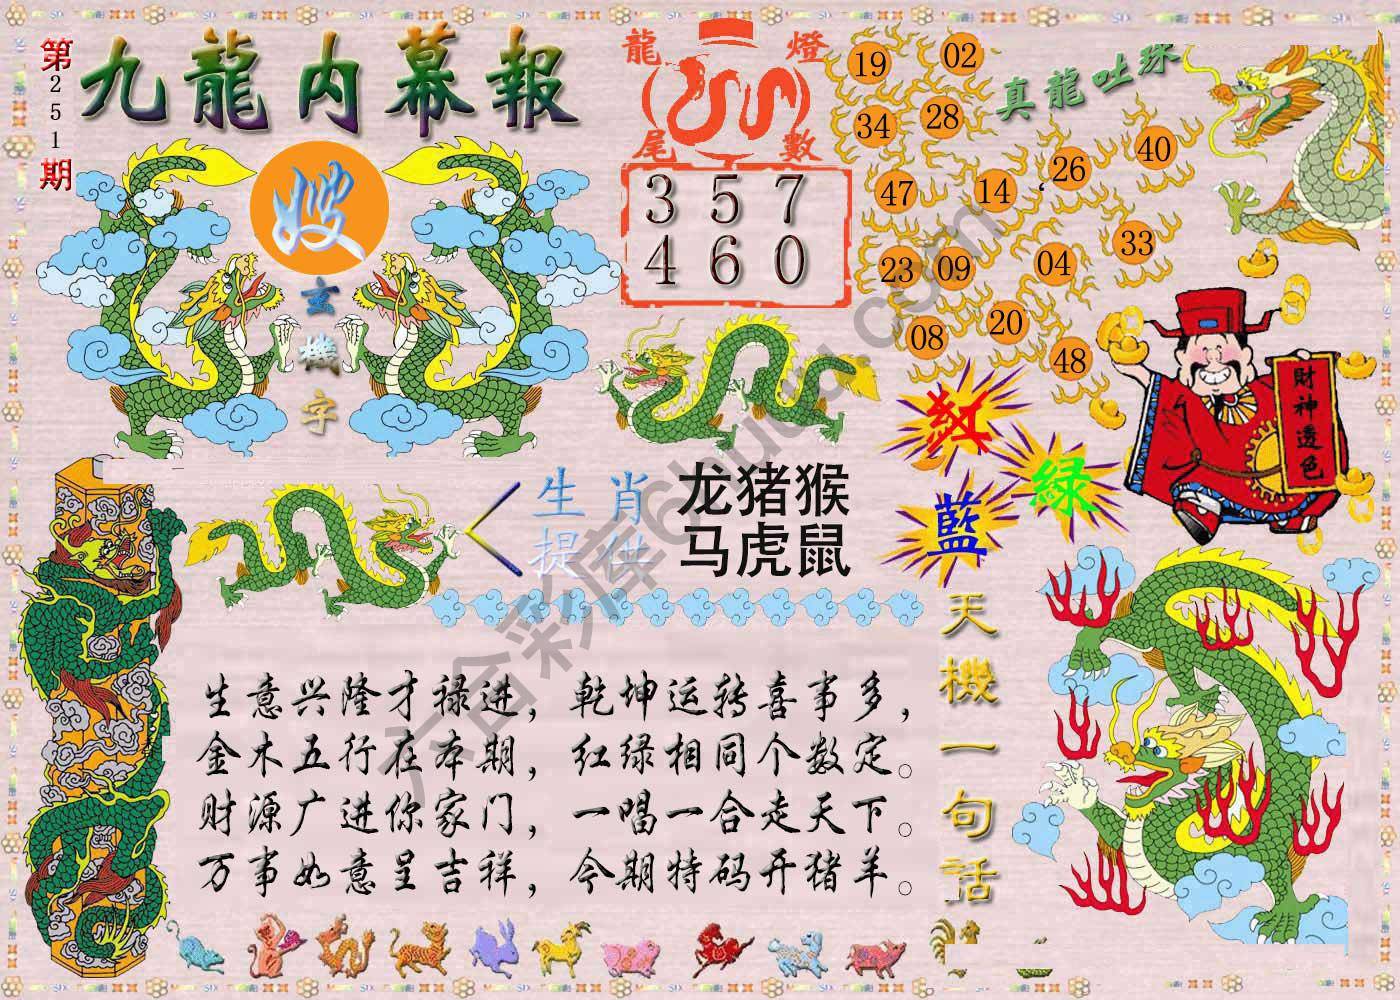 第251期
九龍内幕報
龍燈
尾數
3 5 7
4 6 0
真龍吐珠
19
02
34
28
47
14
26
40
23
09
04
33
08
20
48
嫂
玄機字
財神透色
紅
綠
藍
生肖
提供
龙猪猴
马虎鼠
天機一句话
生意兴隆才禄进，乾坤运转喜事多，
金木五行在本期，红绿相同个数定。
财源广进你家门，一唱一合走天下。
万事如意呈吉祥，今期特码开猪羊。